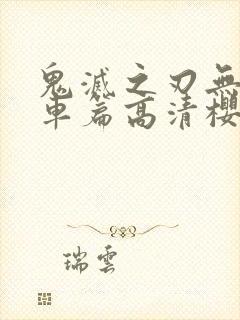 鬼滅之刃無
車篇高清櫻
瑞雲